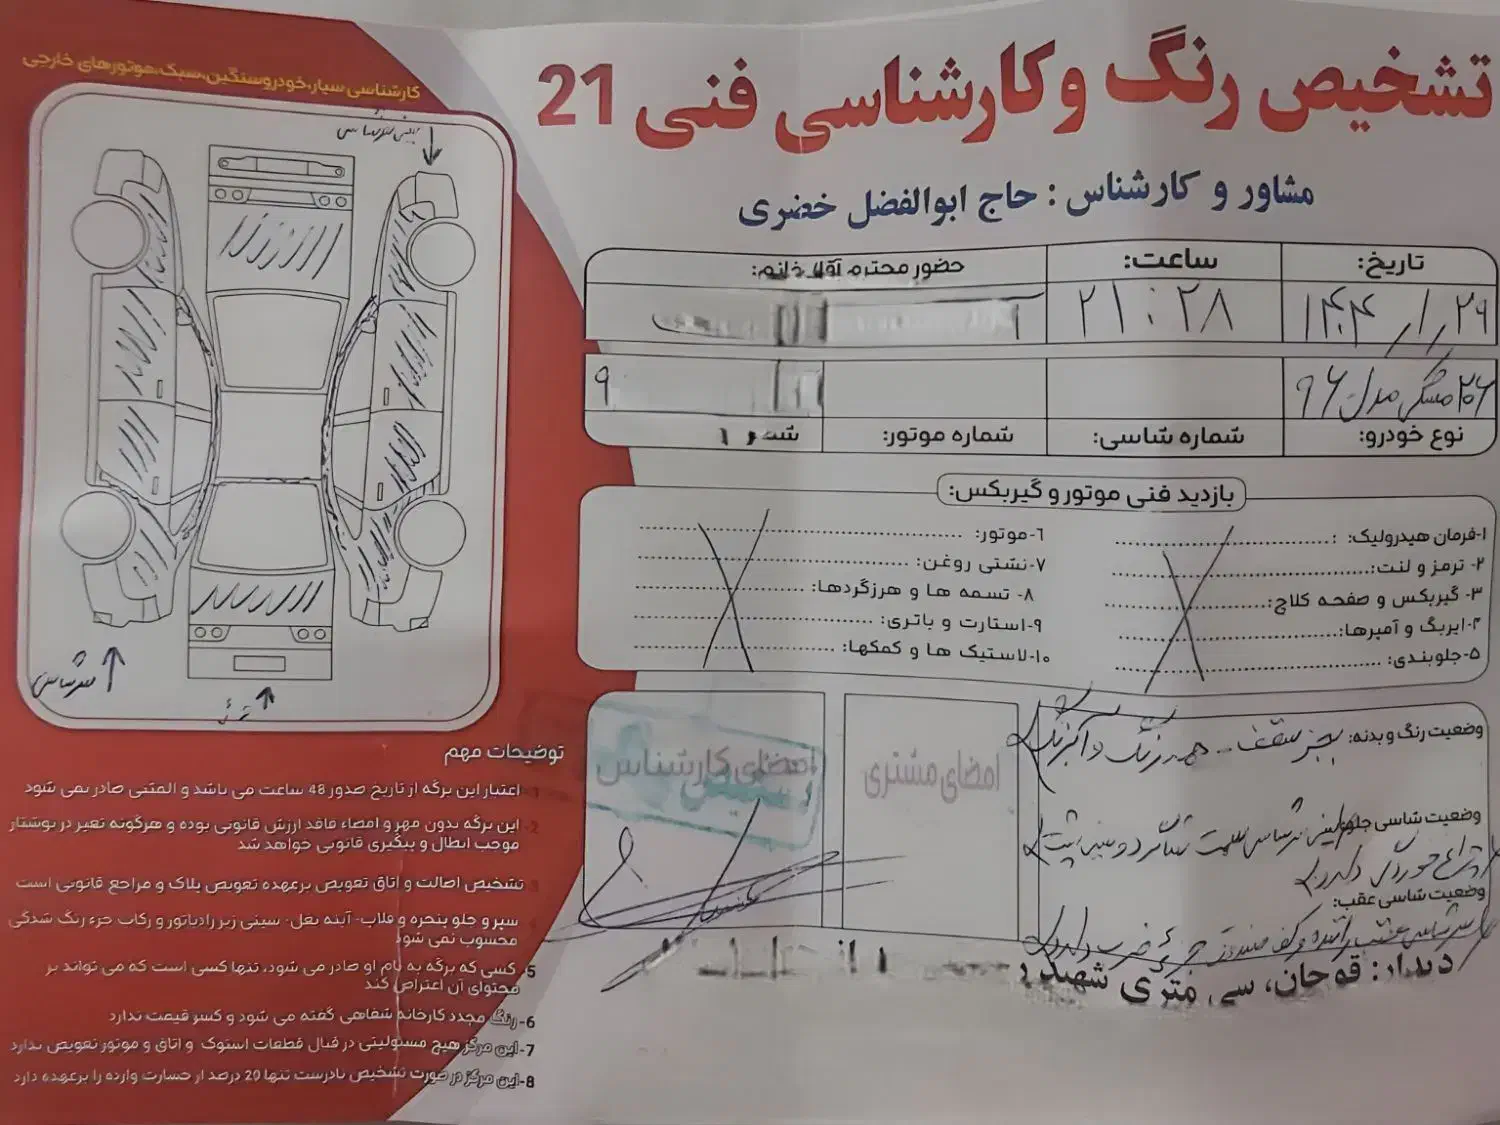 تشخیص رنگ و کارشناسی فنی 21
کارشناسی سیار،خودروسنگین،سبک،موتورهای خارجی
مشاور و کارشناس : حاج ابوالفضل خضری
تاریخ:
ساعت:
حضور محترم آقا/خانم:
۱۴۰۴/۱/۲۹
۲۱:۲۸
۲۰۶ مشکی مدل ۹۶
۹
نوع خودرو:
شماره شاسی:
شماره موتور:
بازدید فنی موتور و گیربکس:
۱-فرمان هیدرولیک:
۲- ترمز و لنت:
۳- گیربکس و صفحه کلاچ:
۴-ایربگ و آمپرها:
۵-جلوبندی:
۶-موتور:
۷-نشتی روغن:
۸- تسمه ها و هرزگردها:
۹-استارت و باتری:
۱۰-لاستیک ها و کمکها:
وضعیت رنگ و بدنه: بجز سقف
وضعیت شاسی جلو:
وضعیت شاسی عقب:
امضای مشتری
امضای کارشناس
سرشاسی
توضیحات مهم
1- اعتبار این برگه از تاریخ صدور 48 ساعت می باشد و المثنی صادر نمی شود
2- این برگه بدون مهر و امضاء فاقد ارزش قانونی بوده و هرگونه تغیر در نوشتار
موجب ابطال و پیگیری قانونی خواهد شد
3- تشخیص اصالت و اتاق تعویض برعهده تعویض پلاک و مراجع قانونی است
4- سپر و جلو پنجره و قلاب- آینه بغل- سینی زیر رادیاتور و رکاب جزء رنگ شدگی
محسوب نمی شود
5- کسی که برگه به نام او صادر می شود، تنها کسی است که می تواند بر
محتوای آن اعتراض کند
6-رنگ مجدد کارخانه شفاهی گفته می شود و کسر قیمت ندارد
7-این مرکز هیچ مسئولیتی در قبال قطعات استوک و اتاق و موتور تعویض ندارد
8-این مرکز در صورت تشخیص نادرست تنها 20 درصد از خسارت وارده را برعهده دارد
قوچان، سی متری شهید